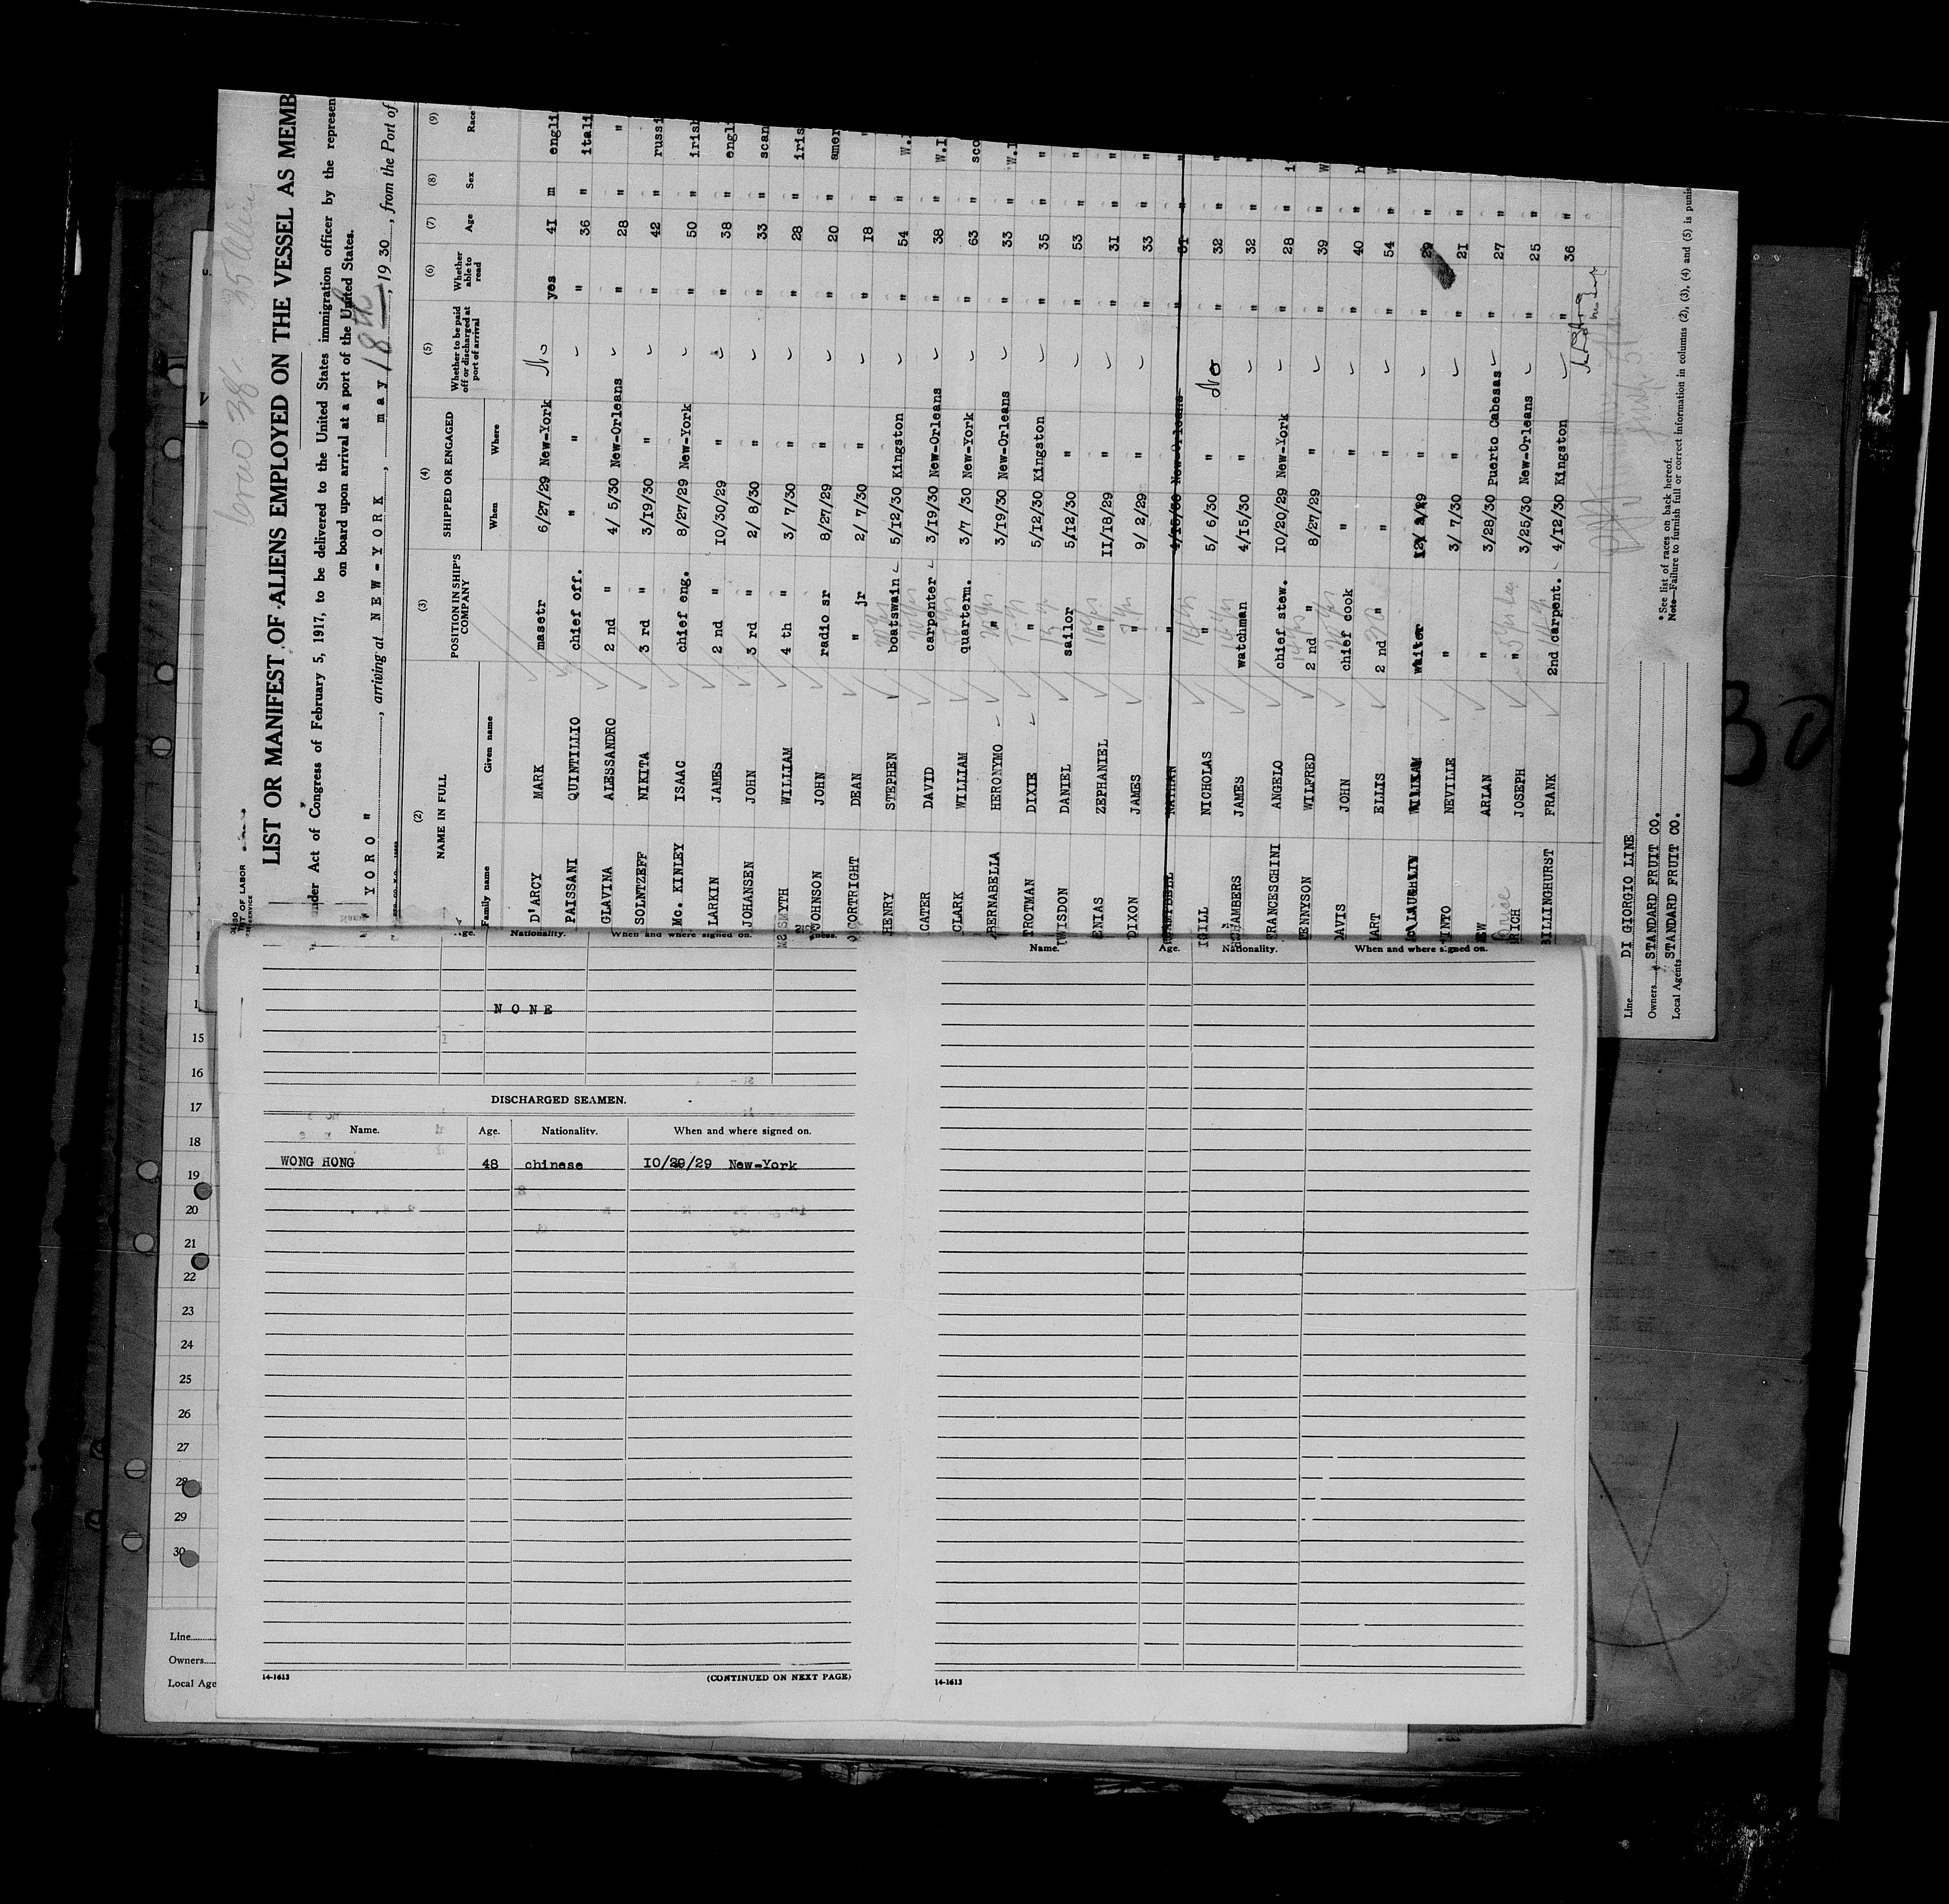 LIST OR MANIFEST OF ALIENS EMPLOYED ON THE VESSEL AS MEMB
under Act of Congress of February 5, 1917, to be delivered to the United States immigration officer by the represen
on board upon arrival at a port of the United States.
" YORO ", arriving at NEW-YORK, may 18th, 1930, from the Port of
(2) (3) (4) (5) (6) (7) (8) (9)
NAME IN FULL POSITION IN SHIP'S COMPANY SHIPPED OR ENGAGED Whether to be paid off or discharged at port of arrival Whether able to read Age Sex Race
Family name Given name When Where
D'ARCY MARK masetr 6/27/29 New-York No yes 41 m engli
PAISSANI QUINTILLIO chief off. " " " 36 " itali
GLAVINA ALESSANDRO 2 nd " 4/ 5/30 New-Orleans " 28 " "
SOLNTZEFF NIKITA 3 rd " 3/19/30 " " 42 " russi
Mc. KINLEY ISAAC chief eng. 8/27/29 New-York " 50 " irish
LARKIN JAMES 2 nd " 10/30/29 " " 38 " engl
JOHANSEN JOHN 3 rd " 2/ 8/30 " " 33 " scan
SMYTH WILLIAM 4 th " 3/ 7/30 " " 28 " iris
JOHNSON JOHN radio sr 8/27/29 " " 20 " amer
CORTRIGHT DEAN " jr 2/ 7/30 " " 18 " "
HENRY STEPHEN boatswain 5/12/30 Kingston " 54 " W.I
CATER DAVID carpenter 3/19/30 New-Orleans " 38 " W.I
CLARK WILLIAM quarterm. 3/7 /30 New-York " 63 " sco
BERNABELLA HERONYMO " 3/19/30 New-Orleans " 33 " W.I
TROTMAN DIXIE " 5/12/30 Kingston " 35 " "
TWISDON DANIEL sailor 5/12/30 " " 53 " "
ENIAS ZEPHANIEL " 11/18/29 " " 31 " "
DIXON JAMES " 9/ 2/29 " " 33 " "
CAMPBELL NATHAN " 4/15/30 New-Orleans " 31 " "
GILL NICHOLAS " 5/ 6/30 " No " 32 " "
CHAMBERS JAMES watchman 4/15/30 " " 32 " "
FRANCESCHINI ANGELO chief stew. 10/20/29 New-York " 28 " i
TENNYSON WILFRED 2 nd " 8/27/29 " " 39 " W
DAVIS JOHN chief cook " " " 40 "
HART ELLIS 2 nd " " " " 54 " W
WILLIAM waiter " " 29 "
PINTO NEVILLE " 3/ 7/30 " " 21 "
EW ARLAN " 3/28/30 Puerto Cabesas " 27 "
RICH JOSEPH " 3/25/30 New-Orleans " 25 "
BILLINGHURST FRANK 2nd carpent. 4/12/30 Kingston " 36 "
Line DI GIORGIO LINE
Owners STANDARD FRUIT CO.
Local Agents STANDARD FRUIT CO.
*See list of races on back hereof.
Note—Failure to furnish full or correct information in columns (2), (3), (4) and (5) is punis
Age. Nationality. When and where signed on.
NONE
DISCHARGED SEAMEN.
Name. Age. Nationality. When and where signed on.
WONG HONG 48 chinese 10/29/29 New-York
14-1613 (CONTINUED ON NEXT PAGE)
Name. Age. Nationality. When and where signed on.
14-1613
15
16
17
18
19
20
21
22
23
24
25
26
27
28
29
30
Line
Owners
Local Age